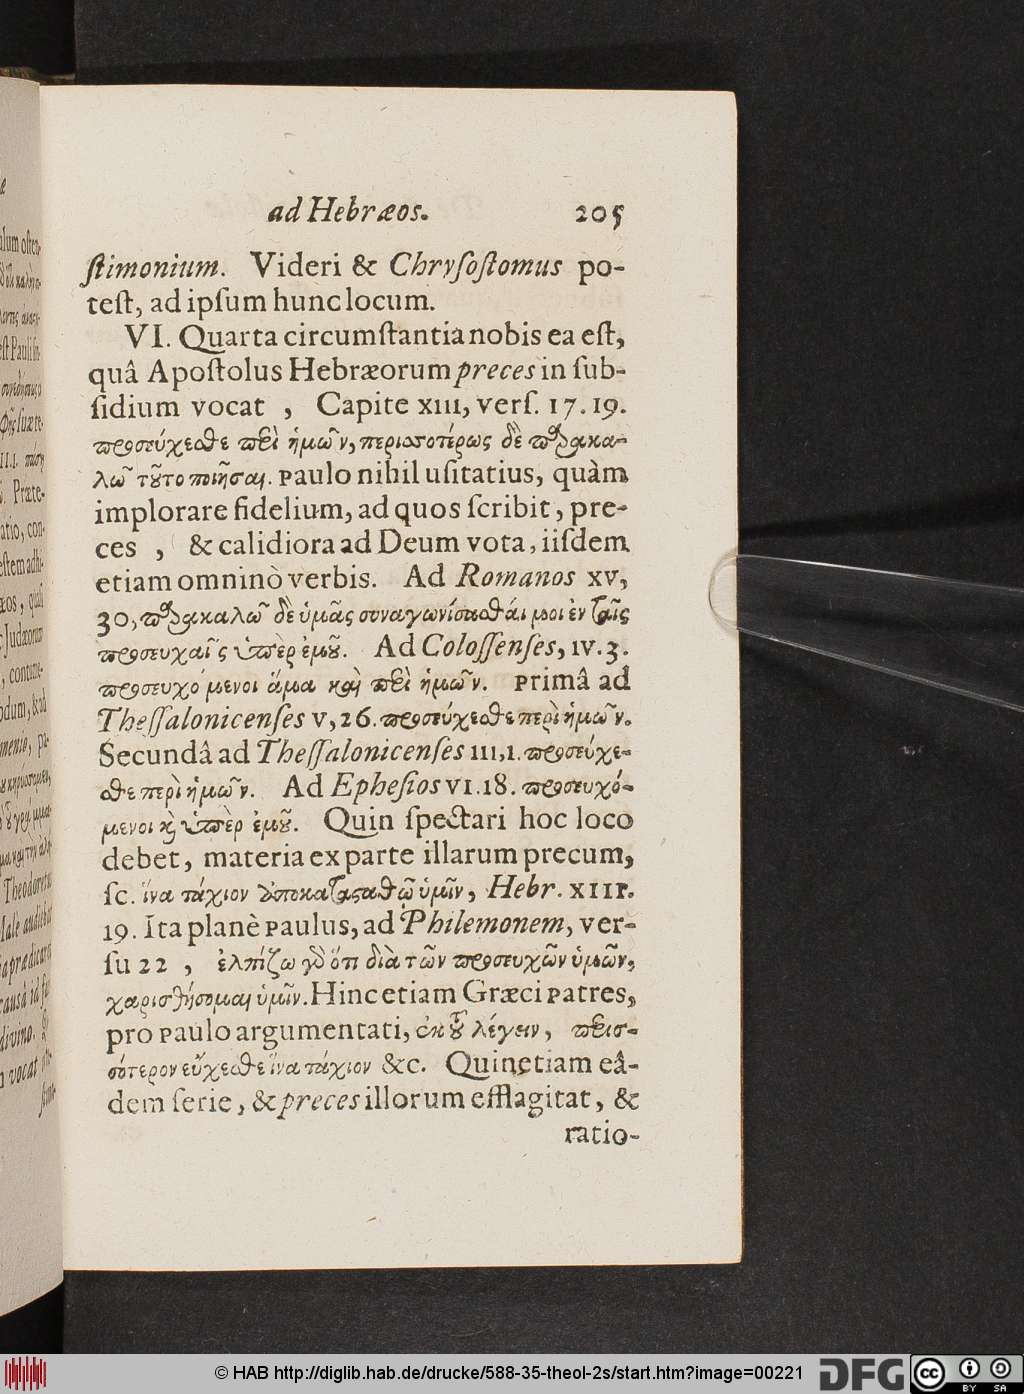 ad Hebræos. 205
ſtimonium. Videri & Chryſoſtomus po-
teſt, ad ipſum hunc locum.
VI. Quarta circumſtantia nobis ea eſt,
quâ Apoſtolus Hebræorum preces in ſub-
ſidium vocat , Capite XIII, verſ. 17. 19.
προσεύχεσθε περὶ ἡμῶν, περισσοτέρως δὲ παρακα-
λῶ τοῦτο ποιῆσαι. Paulo nihil uſitatius, quàm
implorare fidelium, ad quos ſcribit, pre-
ces , & calidiora ad Deum vota, iiſdem
etiam omninò verbis. Ad Romanos XV,
30, παρακαλῶ δὲ ὑμᾶς συναγωνίσασθάι μοι ἐν ταῖς
προσευχαῖς ὑπὲρ ἐμοῦ. Ad Coloſſenſes, IV. 3.
προσευχόμενοι ἅμα καὶ περὶ ἡμῶν. Primâ ad
Theſſalonicenſes V, 26. προσεύχεσθε περὶ ἡμῶν.
Secundâ ad Theſſalonicenſes III, 1. προσεύχε-
σθε περὶ ἡμῶν. Ad Epheſios VI. 18. προσευχό-
μενοι καὶ ὑπὲρ ἐμοῦ. Quin ſpectari hoc loco
debet, materia ex parte illarum precum,
ſc. ἵνα τάχιον ἀποκατασταθῶ ὑμῖν, Hebr. XIII.
19. Ita planè Paulus, ad Philemonem, ver-
ſu 22 , ἐλπίζω γὸ ὅτι διὰ τῶν προσευχῶν ὑμῶν,
χαρισθήσομαι ὑμῖν. Hinc etiam Græci Patres,
pro Paulo argumentati, ἐκ τοῦ λέγειν, περισ-
σότερον εὔχεσθε ἵνα τάχιον &c. Quinetiam eâ-
dem ſerie, & preces illorum efflagitat, &
ratio-
© HAB http://diglib.hab.de/drucke/588-35-theol-2s/start.htm?image=00221
DFG
cc BY SA